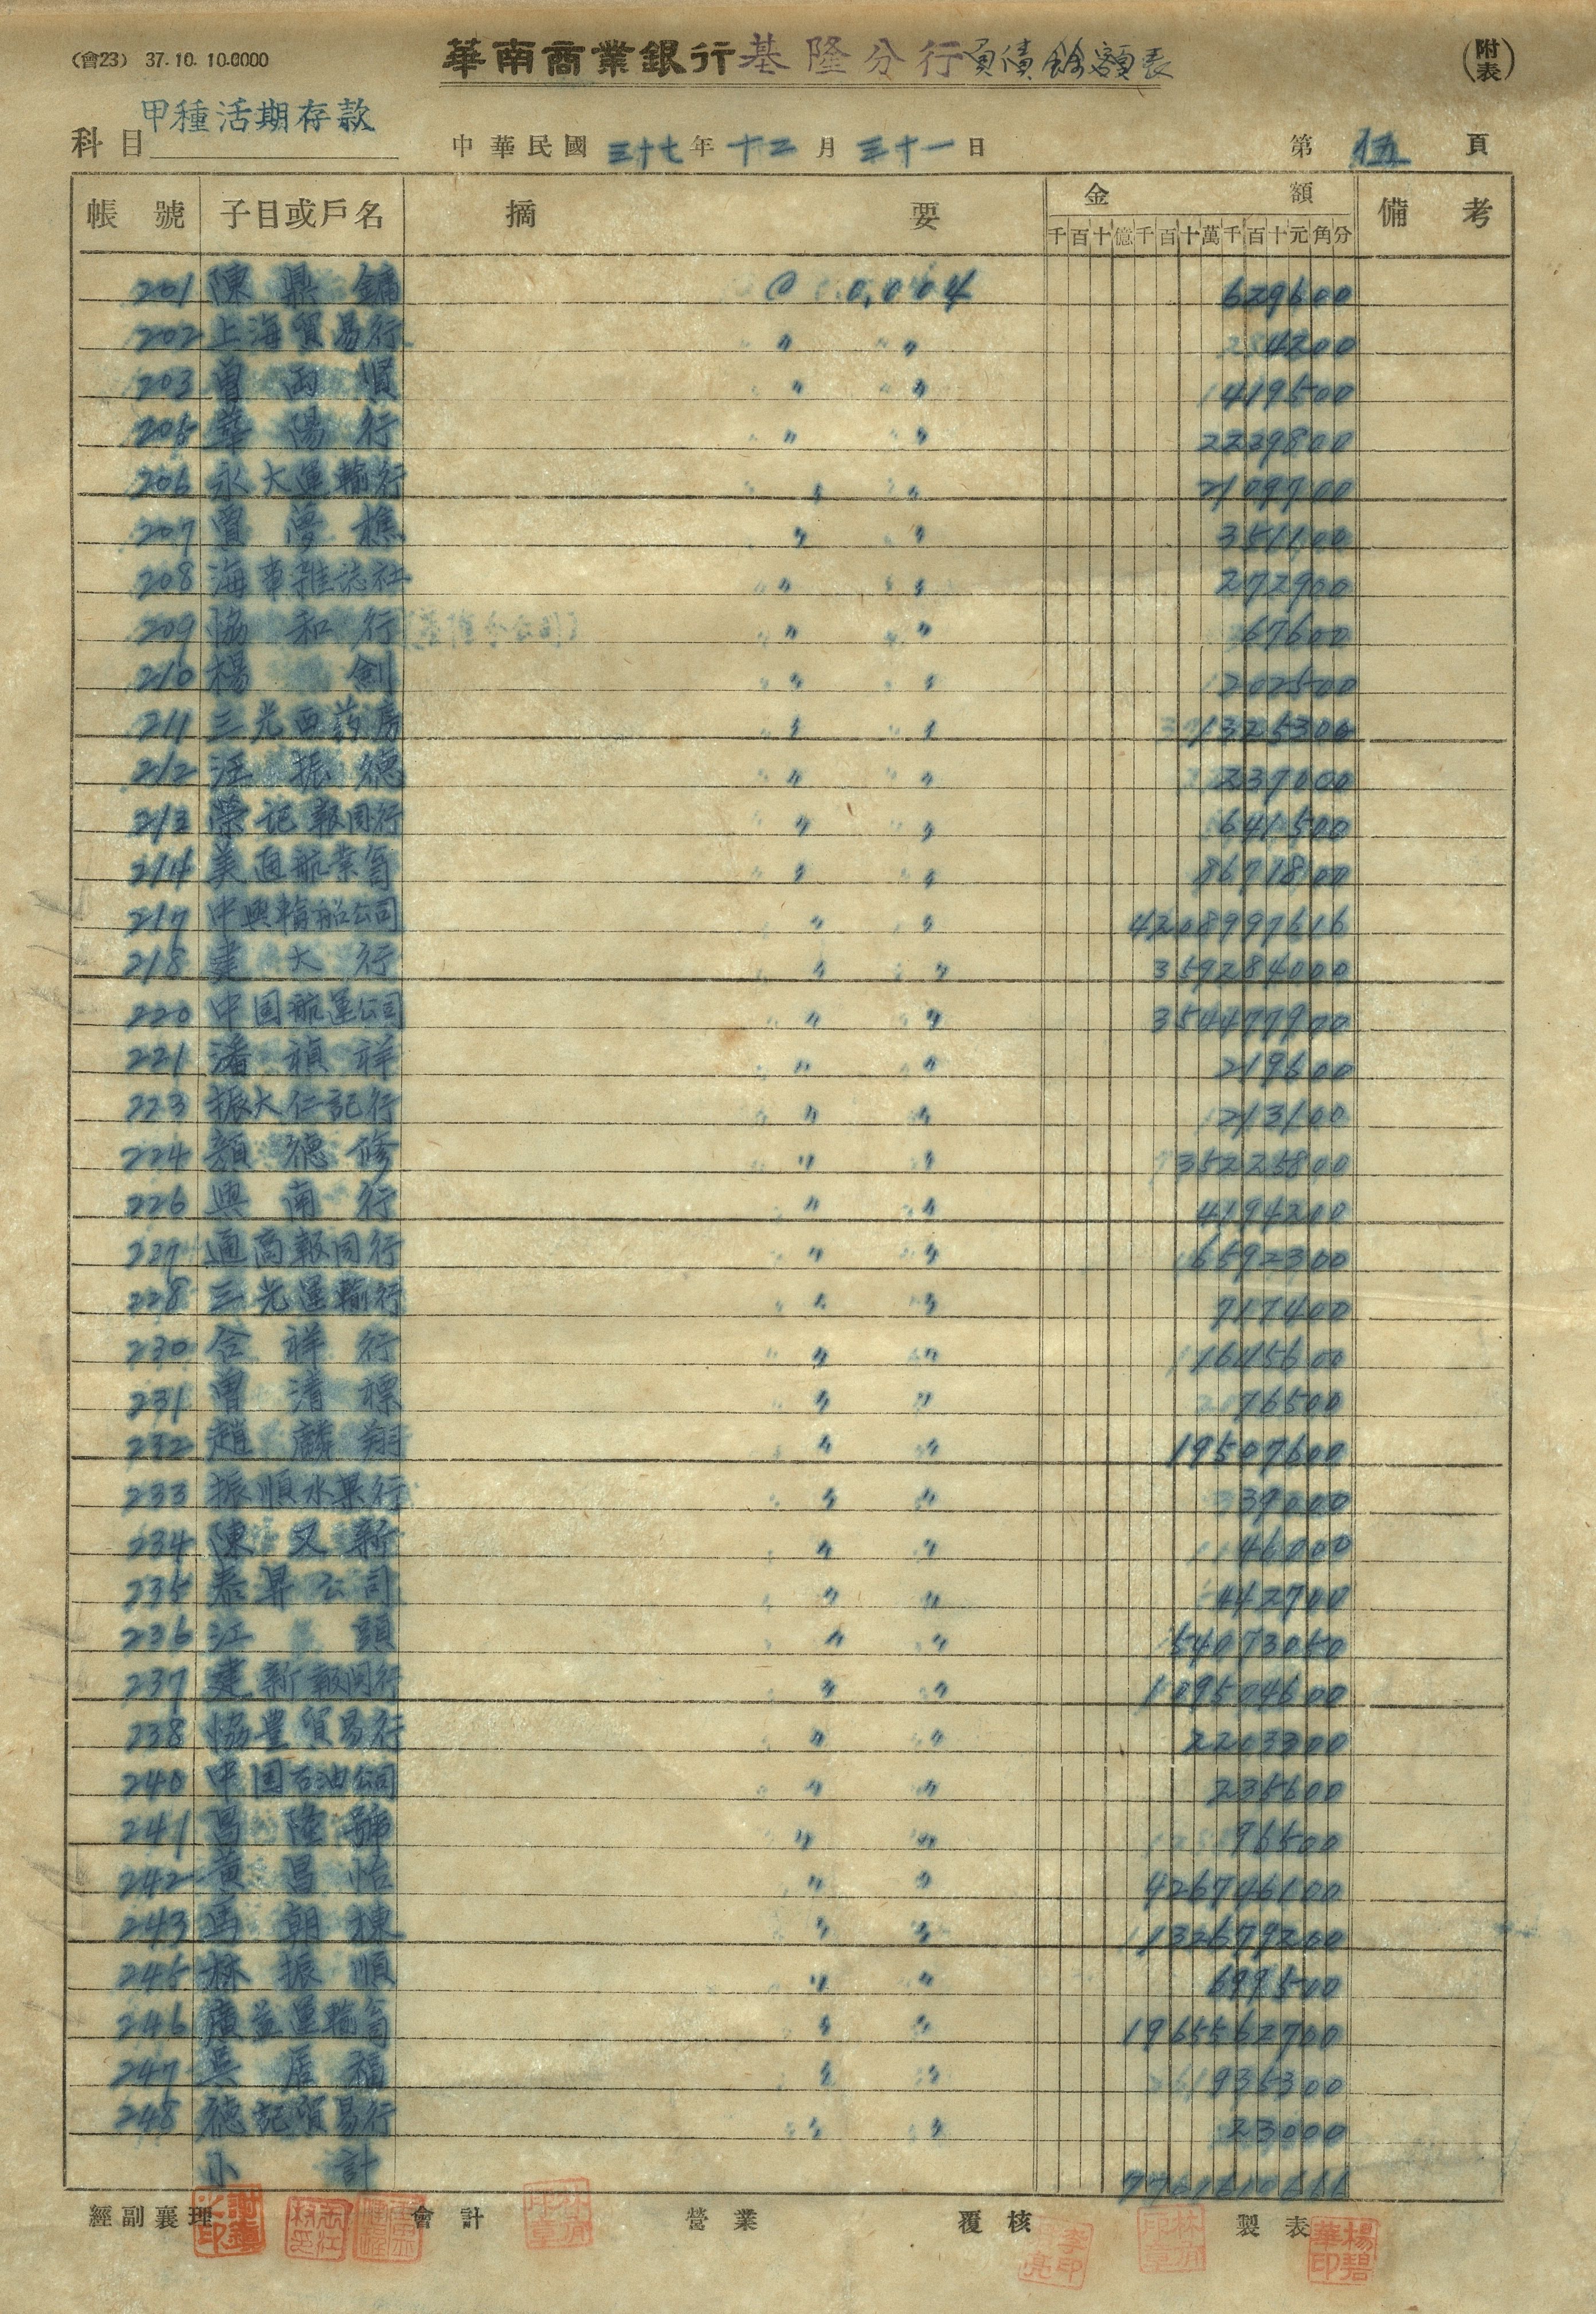 (會23) 37.10.10.0000
華南商業銀行基隆分行負債餘額表
(附表)
科目 甲種活期存款
中華民國三十七年十二月三十一日
第 伍 頁
帳號 子目或戶名 摘要 金額 備考
千百十億千百十萬千百十元角分
201 陳鼎鏞 @ 0.004 629600
202 上海貿易行 〃 〃 4200
203 曾 順 〃 〃 419500
205 華陽行 〃 〃 2239800
206 永大運輸行 〃 〃 2109900
207 夢樵 〃 〃 351100
208 海事雜誌社 〃 〃 272900
209 協和行(基隆分公司) 〃 〃 67600
210 楊劍 〃 〃 202500
211 三光西葯房 〃 〃 1325300
212 汪振德 〃 〃 239000
213 榮記報関行 〃 〃 641500
214 美通航業 〃 〃 8671800
217 中興輪船公司 〃 〃 4208997616
218 建大行 〃 〃 359284000
220 中国航運公司 〃 〃 354477900
221 潘禎祥 〃 〃 219600
223 振大仁記行 〃 〃 213100
224 顏德修 〃 〃 35225800
226 興南行 〃 〃 4194200
227 通商報関行 〃 〃 6592300
228 三光運輸行 〃 〃 717400
230 合祥行 〃 〃 1645600
231 曾清標 〃 〃 76500
232 趙麟翔 〃 〃 19507600
233 振順水菓行 〃 〃 39000
234 陳又新 〃 〃 46000
235 泰昇公司 〃 〃 442700
236 江頭 〃 〃 54073050
237 建新報関行 〃 〃 109504600
238 協豊貿易行 〃 〃 2203300
240 中国石油公司 〃 〃 235600
241 昌隆號 〃 〃 96500
242 黃昌怡 〃 〃 426746100
243 馬朝棟 〃 〃 1326799200
245 林振順 〃 〃 699500
246 廣益運輸 〃 〃 1965562700
247 吳居福 〃 〃 1935300
248 德記貿易行 〃 〃 23000
小計 7761610666
經副襄理 會計 營業 覆核 製表
楊碧華印